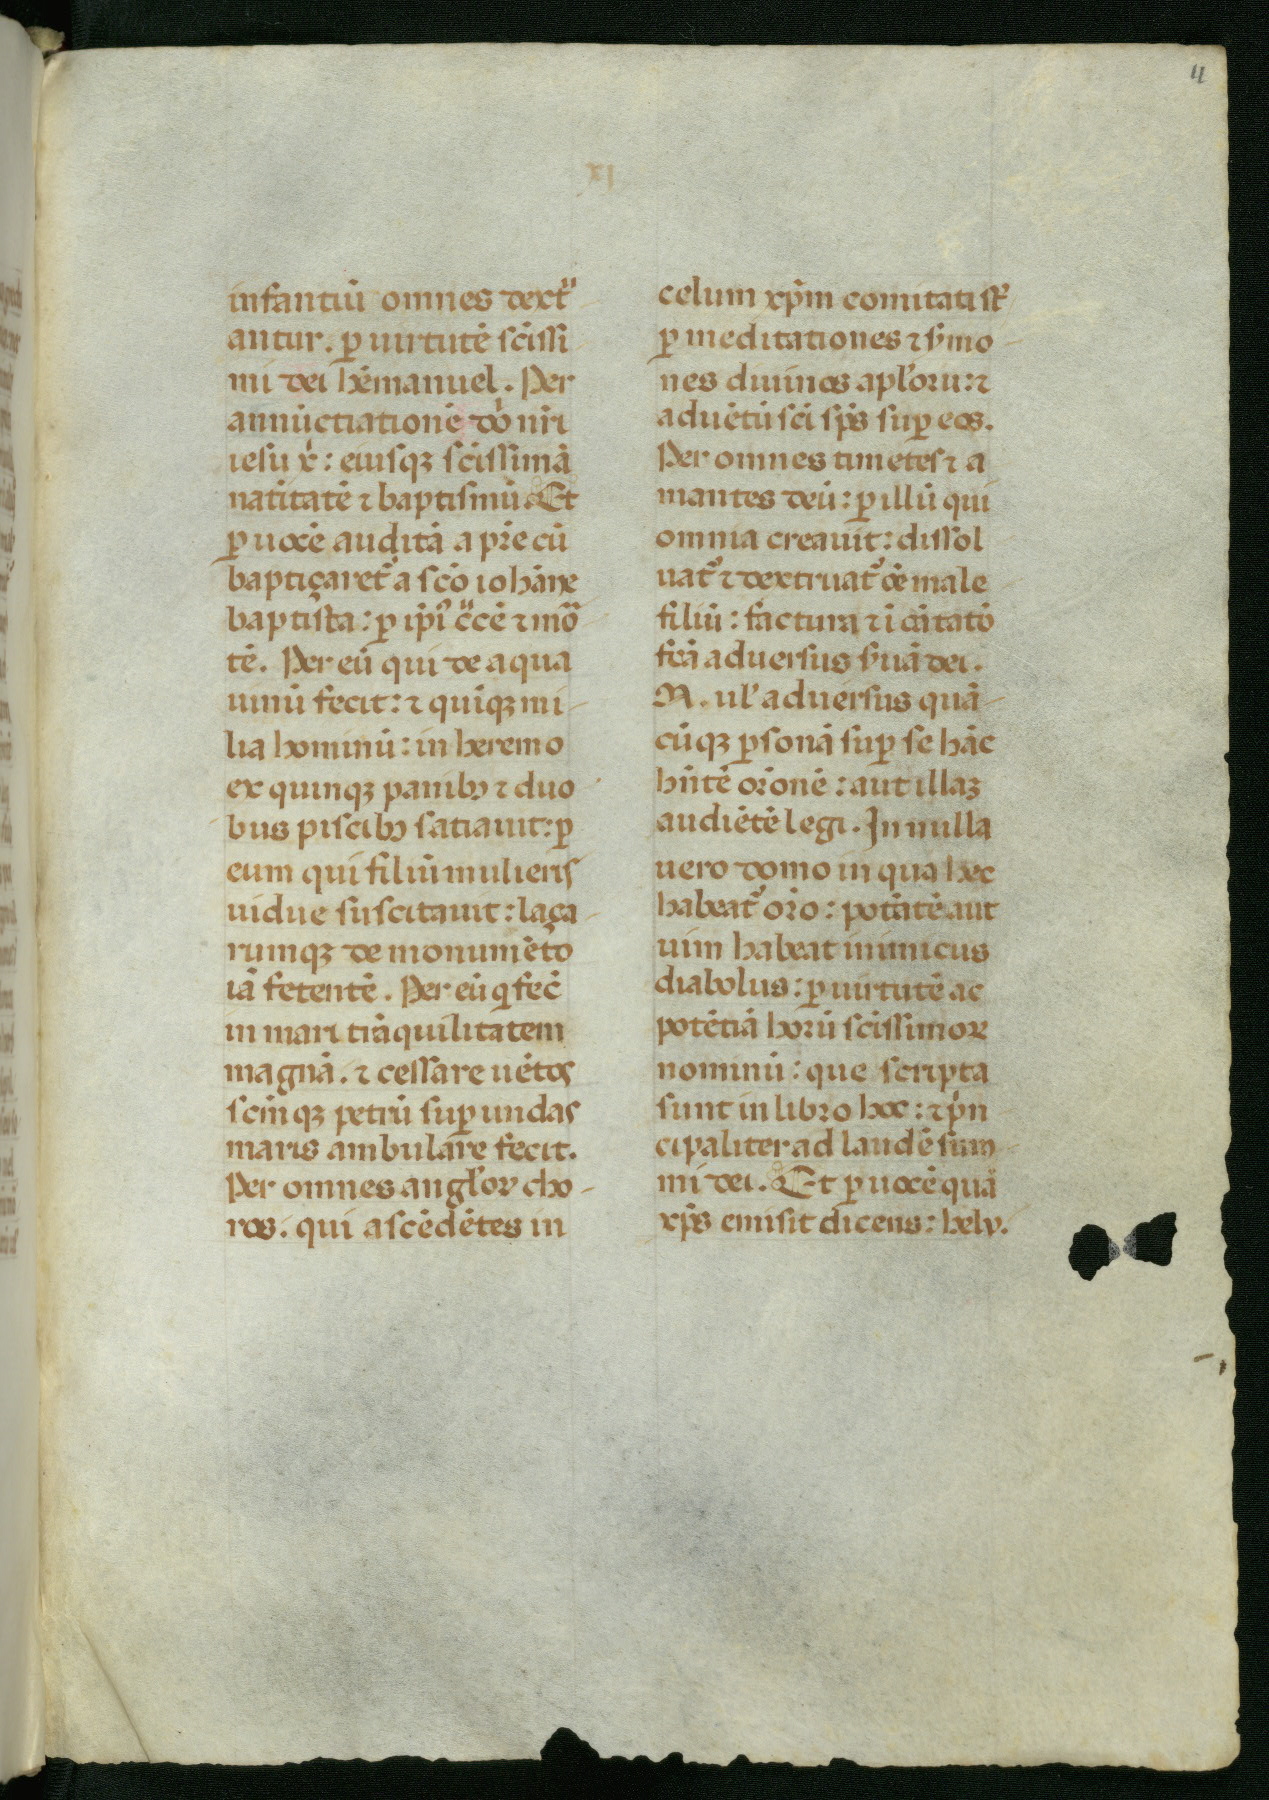 11
xj
infantiū omnes dext
antur. ꝑ uirtutē scīssi
mi dei hēmanuel. Per
annūctiationē dō nr̄i
iesu x̄: eiusqꝫ scīssimā
natītatē ⁊ baptismū. Et
ꝑ uocē auditā a pr̄e cū
baptiçaret᷑ a scō iohāne
baptista: ꝑ ip̄i᷒ c̄cē ⁊ mō
tē. Per eū qui de aqua
uinū fecit: ⁊ quīqꝫ mi-
lia hominū: in heremo
ex quinqꝫ panibꝫ ⁊ duo
bus piscibꝫ satiauit: ꝑ
eum qui filiū mulieris
uidue suscitauit: laça
rumqꝫ de monumēto
iā fetentē. Per eū q̄ fec̄
in mari trāquilitatem
magnā. ⁊ cessare uētos
scm̄qꝫ petrū suꝑ undas
maris ambulare fecit.
Per omnes angl̄oꝝ cho-
ros. qui ascēdētes in
celum xp̄m comitati st̄
ꝑ meditationes ⁊ s̄mo-
nes diuinos apl̄oru: ⁊
aduētū sc̄i sp̄s suꝑ eos.
Per omnes timētes ⁊ a
mantes deū: ꝑ illū qui
omnia creauit: dissol
uat᷑ ⁊ dextruat᷑ oē male
filiū: factura ⁊ ī cātatō
fcā aduersus s̄uā dei.
N. ul̄ aduersus quā-
cūqꝫ ꝑsonā suꝑ se hāc
hn̄tē orōnē: aut illaꝫ
audiētē legi. In nulla
uero domo in qua hec
habeat᷑ orō: potātē aut
uim habeat inimicus
diabolus: ꝑ uirtutē ac
potētiā horū scīssimoꝝ
nominū: que scripta
sunt in libro hoc: ⁊ p̄n
cipaliter ad laudē sum-
mi dei. Et ꝑ uocē quā
xp̄s emisit dicens: hely.